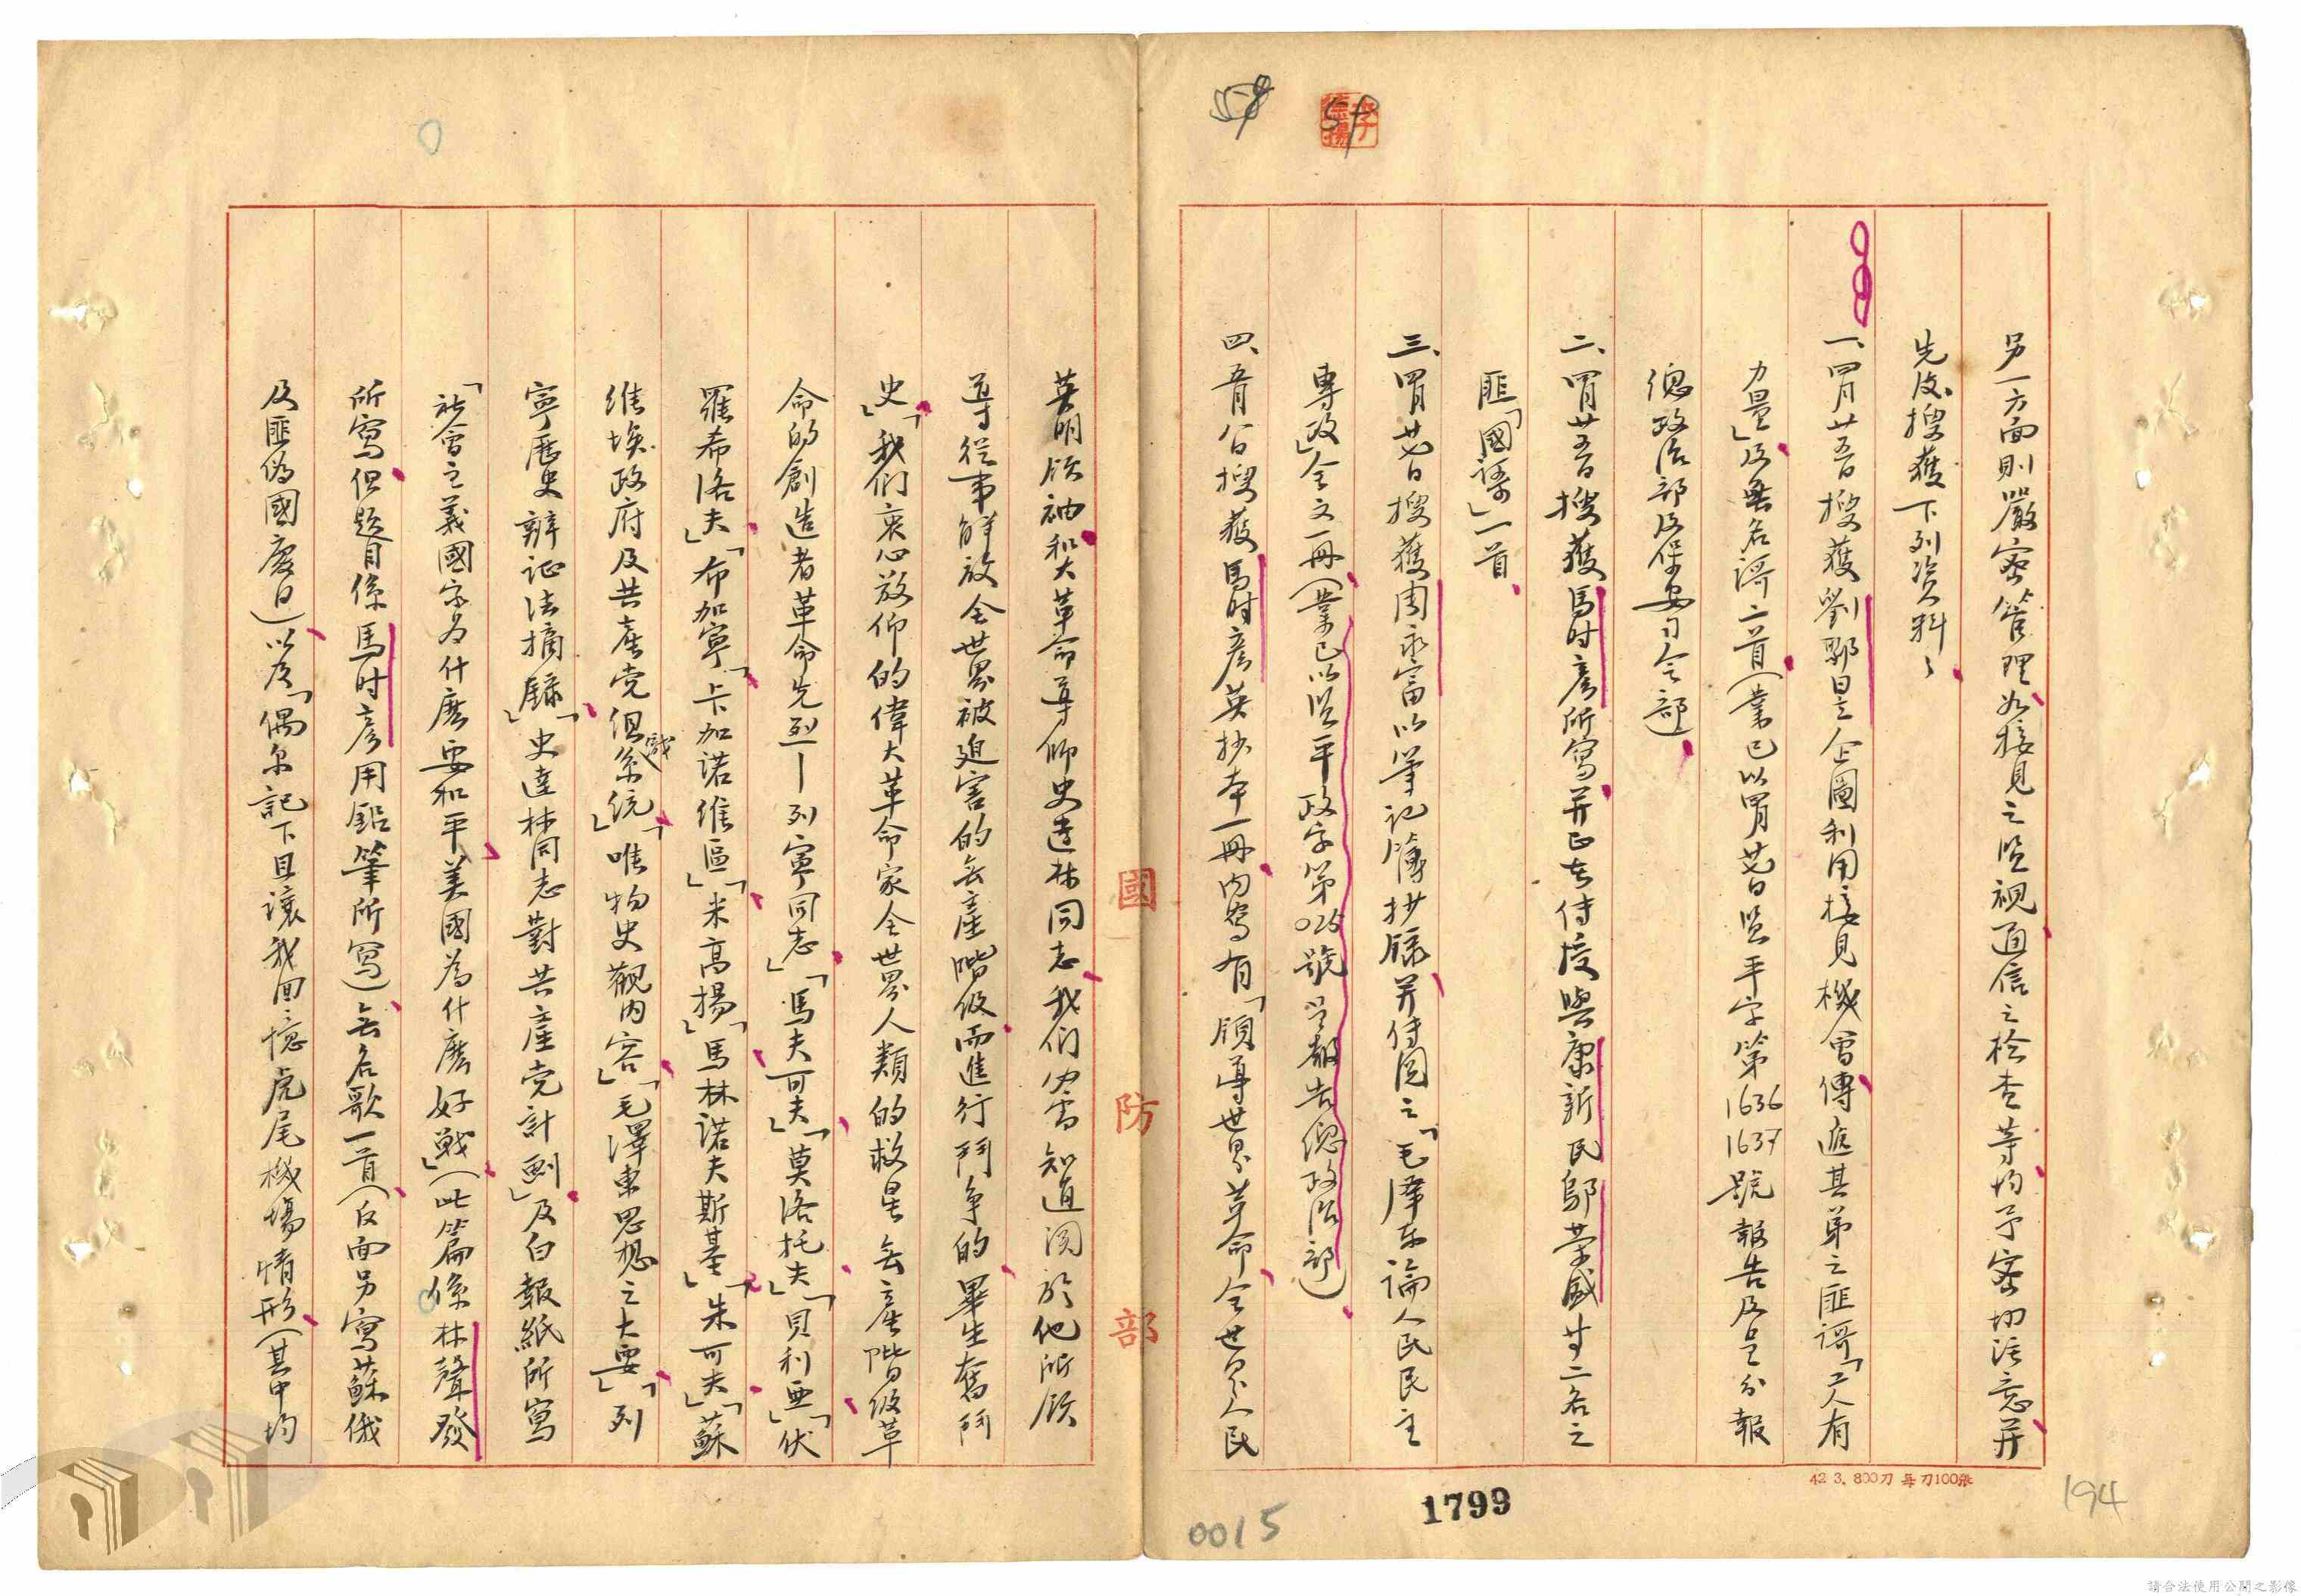 59
李
崇揚
另一方面則嚴密管理如接見之監視通信之检查等均予密切注意并
先後搜獲下列资料：
一、四月廿五日搜獲劉鄂昰企圖利用接見機會傳遞其弟之匪謌「工人有
力量」及無名謌二首（業已以四月廿日监平字第1636 1637號報告及呈分報
總政治部及保安司令部）
二、四月廿五日搜獲馬时彦所寫并正在侍度與康新民鄔荣盛廿二名之
匪「國謌」一首
三、四月廿七日搜獲周永富以筆记簿抄錄并侍閱之「毛澤东論人民民主
專政」全文一冊（業已以监平政字第025號以報告總政治部）
四、五月八日搜獲馬时彦英抄本一冊内寫有「領導世界革命全世界人民
英明領袖和大革命導师史達林同志我们必需知道関於他所領
導從事解放全世界被廹害的無產階级而進行鬥争的畢生奮鬥
史」「我们衷心敬仰的偉大革命家全世界人類的救星無產階级革
命的創造者革命先烈—列寧同志」「馬夫可夫」「莫洛托夫」「貝利亜」「伏
羅希洛夫」「布加寧」「卡加诺维區」「米高揚」「馬林诺夫斯基」「朱可夫」「蘇
维埃政府及共產党组织系统」「唯物史觀内容」「毛澤東思想之大要」「列
寧歷史辯证法摘錄」「史達林同志對共產党計劃」及白報紙所寫
「社會主義國家為什麽要和平美國為什麽好戰」（此篇係林聲發
所寫但题目係馬时彦用鉛筆所寫）無名歌一首（反面另寫蘇俄
及匪偽國慶日）以及「偶尔記下且讓我回憶虎尾機場情形（其中均
國
防
部
42 3. 800刀 每刀100张
1799
0015
194
請合法使用公開之影像